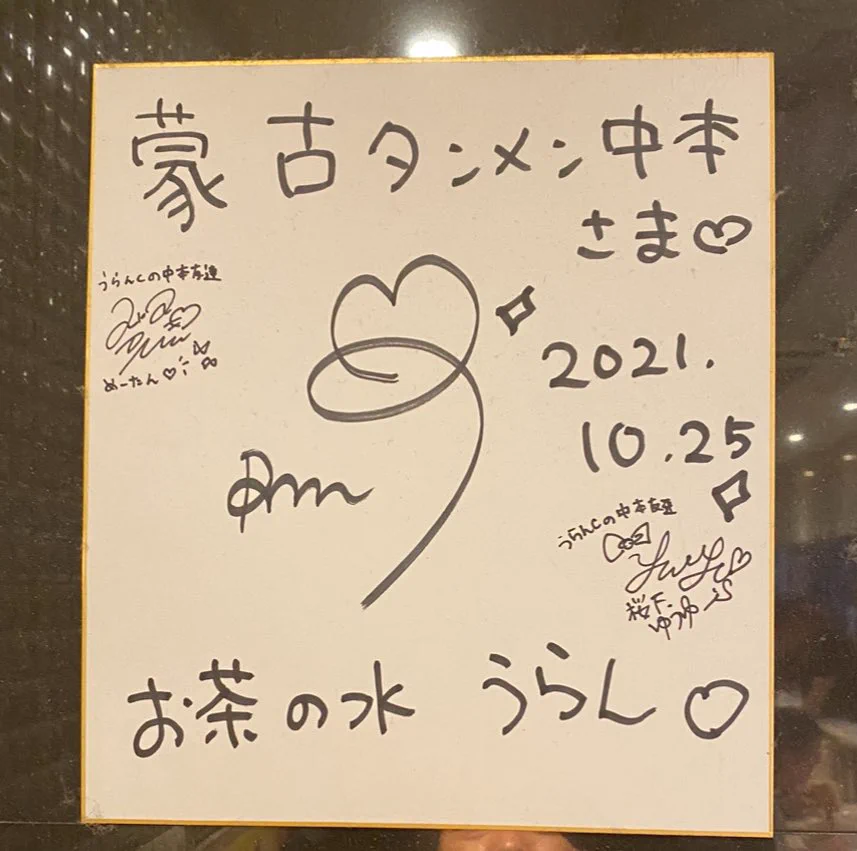 蒙古タンメン中本
さま♡
うらんCの中本友達
めーたん♡
2021.
10.25
うらんCの中本友達
桜下
ゆうゆ
お茶の水 うらん♡